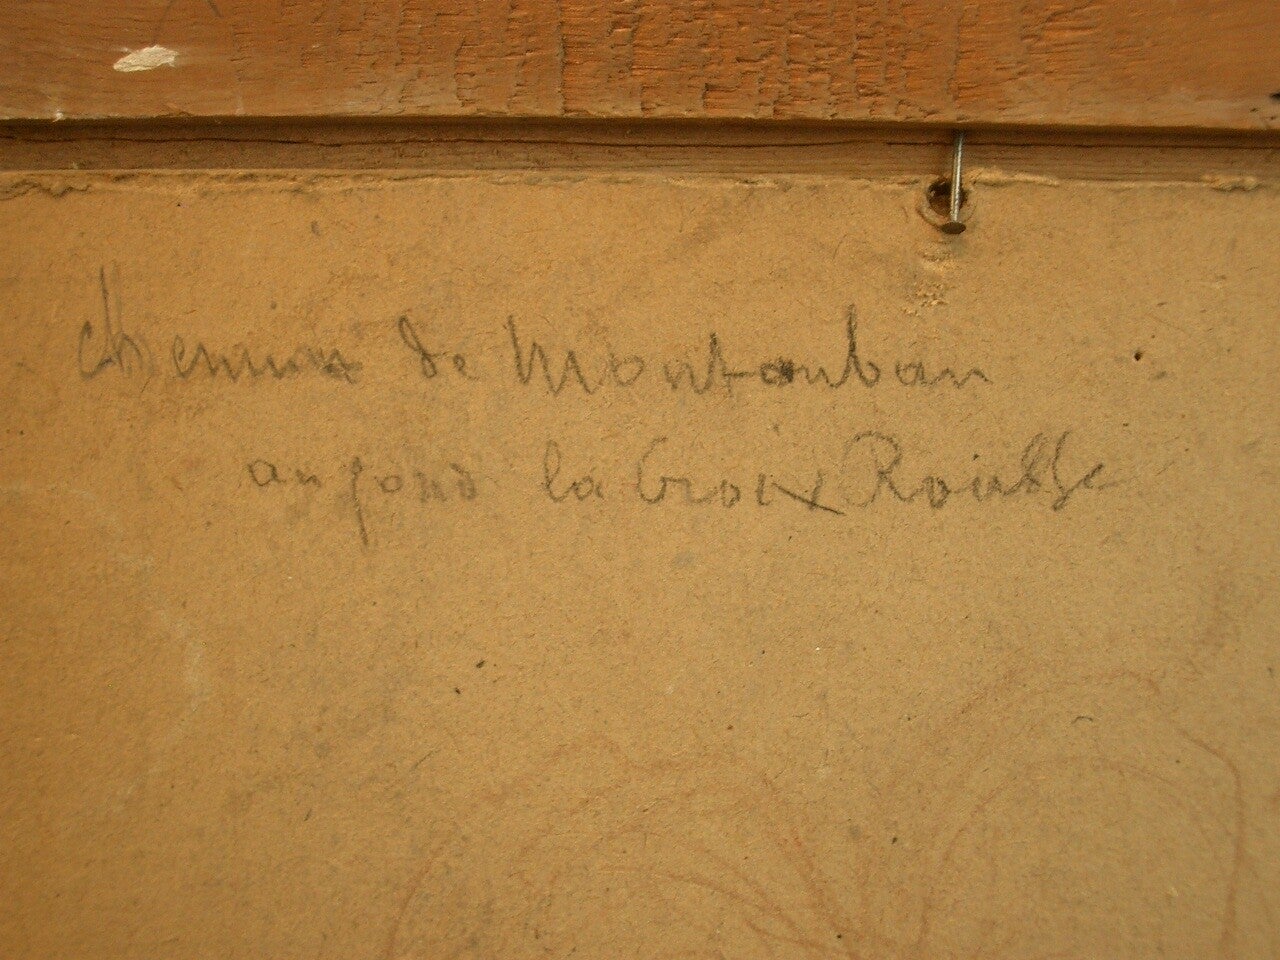 Chemin de Montauban
au fond la Croix Rousse